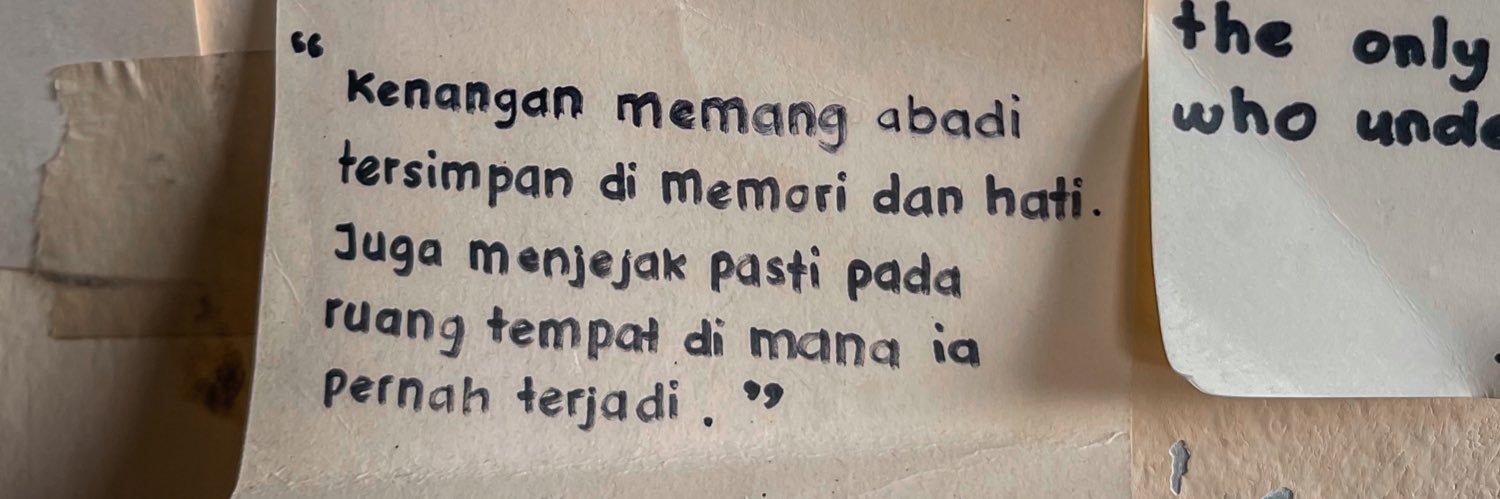 “
Kenangan memang abadi
tersimpan di memori dan hati.
Juga menjejak pasti pada
ruang tempat di mana ia
pernah terjadi. ”
the only
who unde